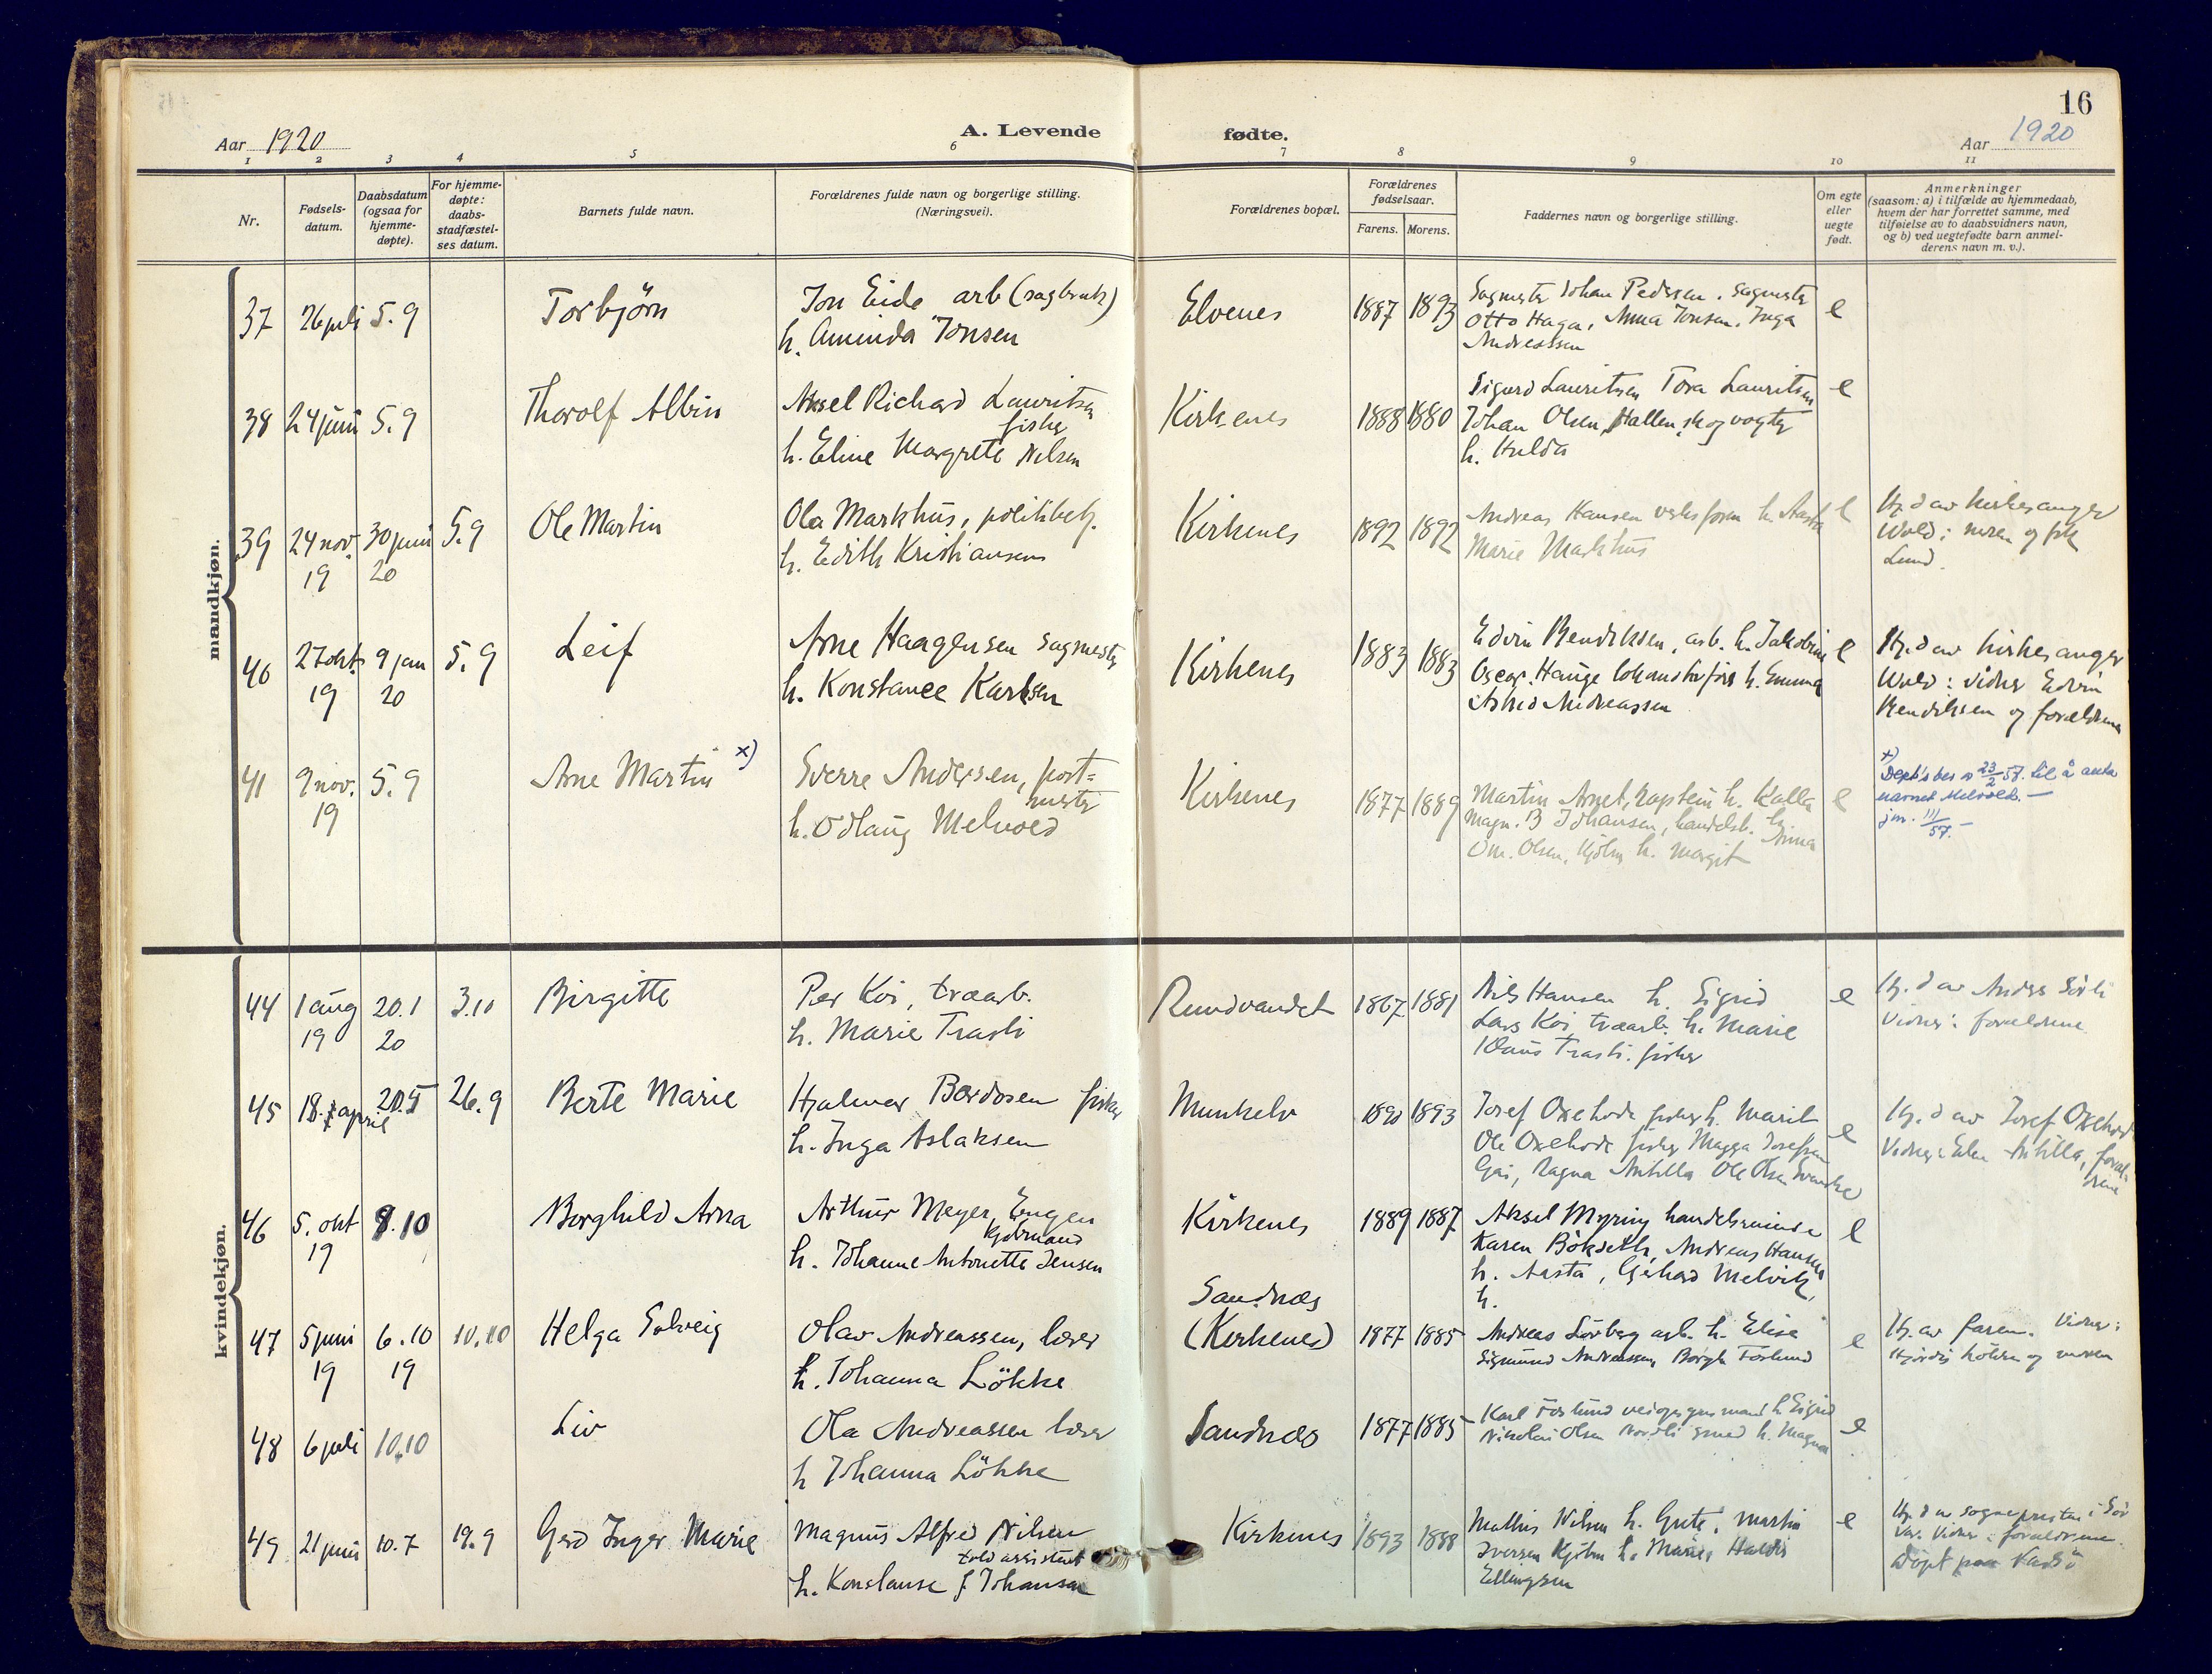 16
Aar 1920
A. Levende fødte.
Aar 1920
1 2 3 4 5 6 7 8 9 10 11
Nr.
Fødsels-
datum.
Daabsdatum
(ogsaa for
hjemme-
døpte).
For hjemme-
døpte:
daabs-
stadfæstel-
ses datum.
Barnets fulde navn.
Forældrenes fulde navn og borgerlige stilling.
(Næringsvei).
Forældrenes bopæl.
Forældrenes
fødselsaar.
Farens. Morens.
Faddernes navn og borgerlige stilling.
Om egte
eller
uegte
født.
Anmerkninger
(saasom: a) i tilfælde av hjemmedaab,
hvem der har forrettet samme, med
tilføielse av to daabsvidners navn,
og b) ved uegtefødte barn anmel-
derens navn m. v.).
mandkjøn.
37 26 juli 5.9
Torbjörn
Jon Eide arb (sagbruk)
h. Aminda Jonsen
Elvenes
1887 1893
Sagmester Johan Pedersen, sagmester
Otto Haga, Anna Jonsen, Inga
Andreassen
e
38 24 juni 5.9
Thorolf Albin
Aksel Richard Lauritsen
fisker
h. Eline Margrete Nilsen
Kirkenes
1888 1880
Sigurd Lauritsen Tora Lauritsen
Johan Olsen Hallen, skogvogter
h. Hulda
e
39 24 nov. 19 30 juni 20 5.9
Ole Martin
Ola Markhus, politibetj.
h. Edith Kristiansen
Kirkenes
1892 1892
Andreas Hansen verksform h. Aasta
Marie Markhus
e
Hj. d av kirkesanger
Wold: moren og frk
Lund.
40 27 okt. 19 9 jan 20 5.9
Leif
Arne Haagensen sagmester
h. Konstance Karlsen
Kirkenes
1883 1883
Edvin Bendiksen, arb. h. Jakobine
Oscar Hauge lokomotivförer h. Emma
Astrid Andreassen
e
Hj. d av kirkesanger
Wold: vidner Edvin
Bendiksen og forældrene
41 9 nov. 19 5.9
Arne Martin x)
Sverre Andersen, post-
mester
h. Odlaug Melvold
Kirkenes
1877 1889
Martin Arnet, kaptein h. Kalla
Magn. B Johansen, handelsb. h. Anna
Om. Olsen, kjøbm h. Margit
e
x)
Dept's bev 23/2 57. til å anta
navnet Melvold. —
jnr. 111/57. —
kvindekjøn.
44 1 aug 19 20.1 20 3.10
Birgitte
Per Koi, træarb.
h. Marie Trasti
Rundvandet
1867 1881
Nils Hansen h. Sigrid
Lars Koi, træarb. h. Marie
Klaus Trasti. fisker
e
Hj. d av Anders Sørli
Vidner: forældrene
45 18. april 20.5 26.9
Berte Marie
Hjalmar Bordosen fisker
h. Inga Aslaksen
Munkelv
1890 1893
Josef Oxehode fisker h. Marit
Ole Oxehode fisker Magga Josefsen
Ragna Antilla Ole Olsen
e
Hj. d av Josef Oxehode
Vidner: Antilla, foræl-
drene
46 5. okt 19 8.10
Borghild Arna
Arthur Meyer Engen
kjobmand
h. Johanne Antonette Jensen
Kirkenes
1889 1887
Aksel Myring handelsreisende
Karen Bökseth, Andreas Hansen
h. Aasta, Gerhard Melvik,
h.
e
47 5 juni 19 6.10 19 10.10
Helga Solveig
Olav Andreassen, lærer
h. Johanna Lökke
Sandnæs
(Kirkenes)
1877 1885
Andreas Sørberg arb. h. Elise
Sigmund Andreassen, Borgh. Forlund
e
Hj. av faren. Vidner:
Hjördis og moren
48 6 juli 10.10
Liv
Ola Andreassen lærer
h Johanna Lökke
Sandnæs
1877 1885
Karl Forlund h Sigrid
Nikolai Olsen Nordli smed h. Magna
e
49 21 juni 10.7 19.9
Gerd Inger Marie
Magnus Alfred Nilsen
told assistent
h. Konstanse J Johansen
Kirkenes
1893 1888
Mathis Nilsen h. Grete, Martin
Iversen kjöbm h. Marie, Haldis
Ellingsen
e
Hj. d av sognepresten i Sör
Var. Vidner: forældrene.
Døpt paa Vadsö